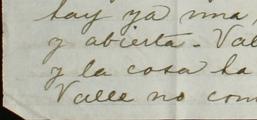 hay ya una
y abierta. Val
y la cosa ha
Valle no com